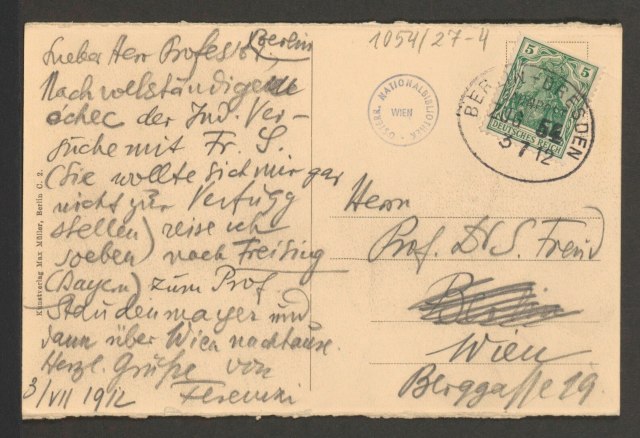 1054/27-4
Lieber Herr Professor, Berlin
Nach vollständigem
échec der Ind. Ver-
suche mit Fr. S.
(Sie wollte sich mir gar
nicht zur Verfügg
stellen) reise ich
soeben) nach Freising
(Bayern) zum Prof.
Staudenmayer und
dann über Wien nachhause.
Herzl. Grüße von
3/VII 1912 Ferenczi
Kunstverlag Max Müller, Berlin C. 2.
ÖSTERR. NATIONALBIBLIOTHEK
WIEN
5 5
DEUTSCHES REICH
BERLIN-DRESDEN
ZUG 52
3 7 12
Herrn
Prof. Dr S. Freud
Berlin
Wien
Berggasse 19.